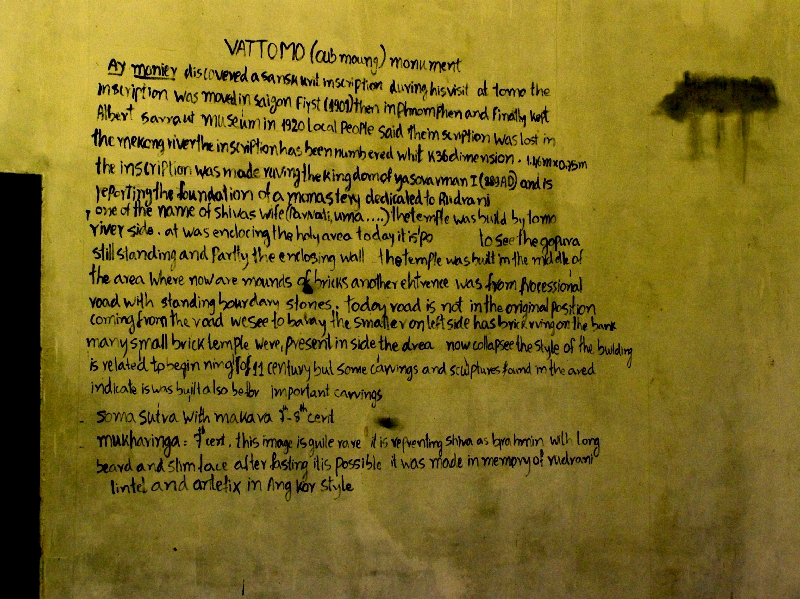 VATTOMO (oub moung) monument
Ay monier discovered a sanskurit inscription during his visit at tomo the
inscription was moved in saigon First (1901) then in phnomphen and Finally kept
Albert sarraut museum in 1920 local people said the inscription was lost in
the mekong river the inscription has been numbered whit K36 dimension. 1.46m x 0.75m
the inscription was made ruring the kingdom of yasovarman I (889AD) and is
reporting the foundation of a monastery dedicated to Rudrani
, one of the name of Shivas wife (Parvati, uma....) the temple was build by tomo
river side. at was enclocing the holy area today it is po to see the gopura
still standing and Partly the enclosing wall the temple was built in the middle of
the area where now are mounds of bricks another entrence was from Processional
road with standing bourdary stones. today road is not in the original position
coming from the road we see to baray the smaller on left side has brick rving on the bank
many small brick temple were, present in side the area now collapsee the style of the building
is related to begin ning of 11 century but some carvings and sculptures found in the area
indicate is was built also befor important carvings
- soma sutra with makara 7th-8th cent
- mukharinga: 7th cent. this image is guile rare it is reprenting shiva as brahmin with long
beard and slim face after fasting it is possible it was made in memory of rudrani
lintel and antefix in Angkor style